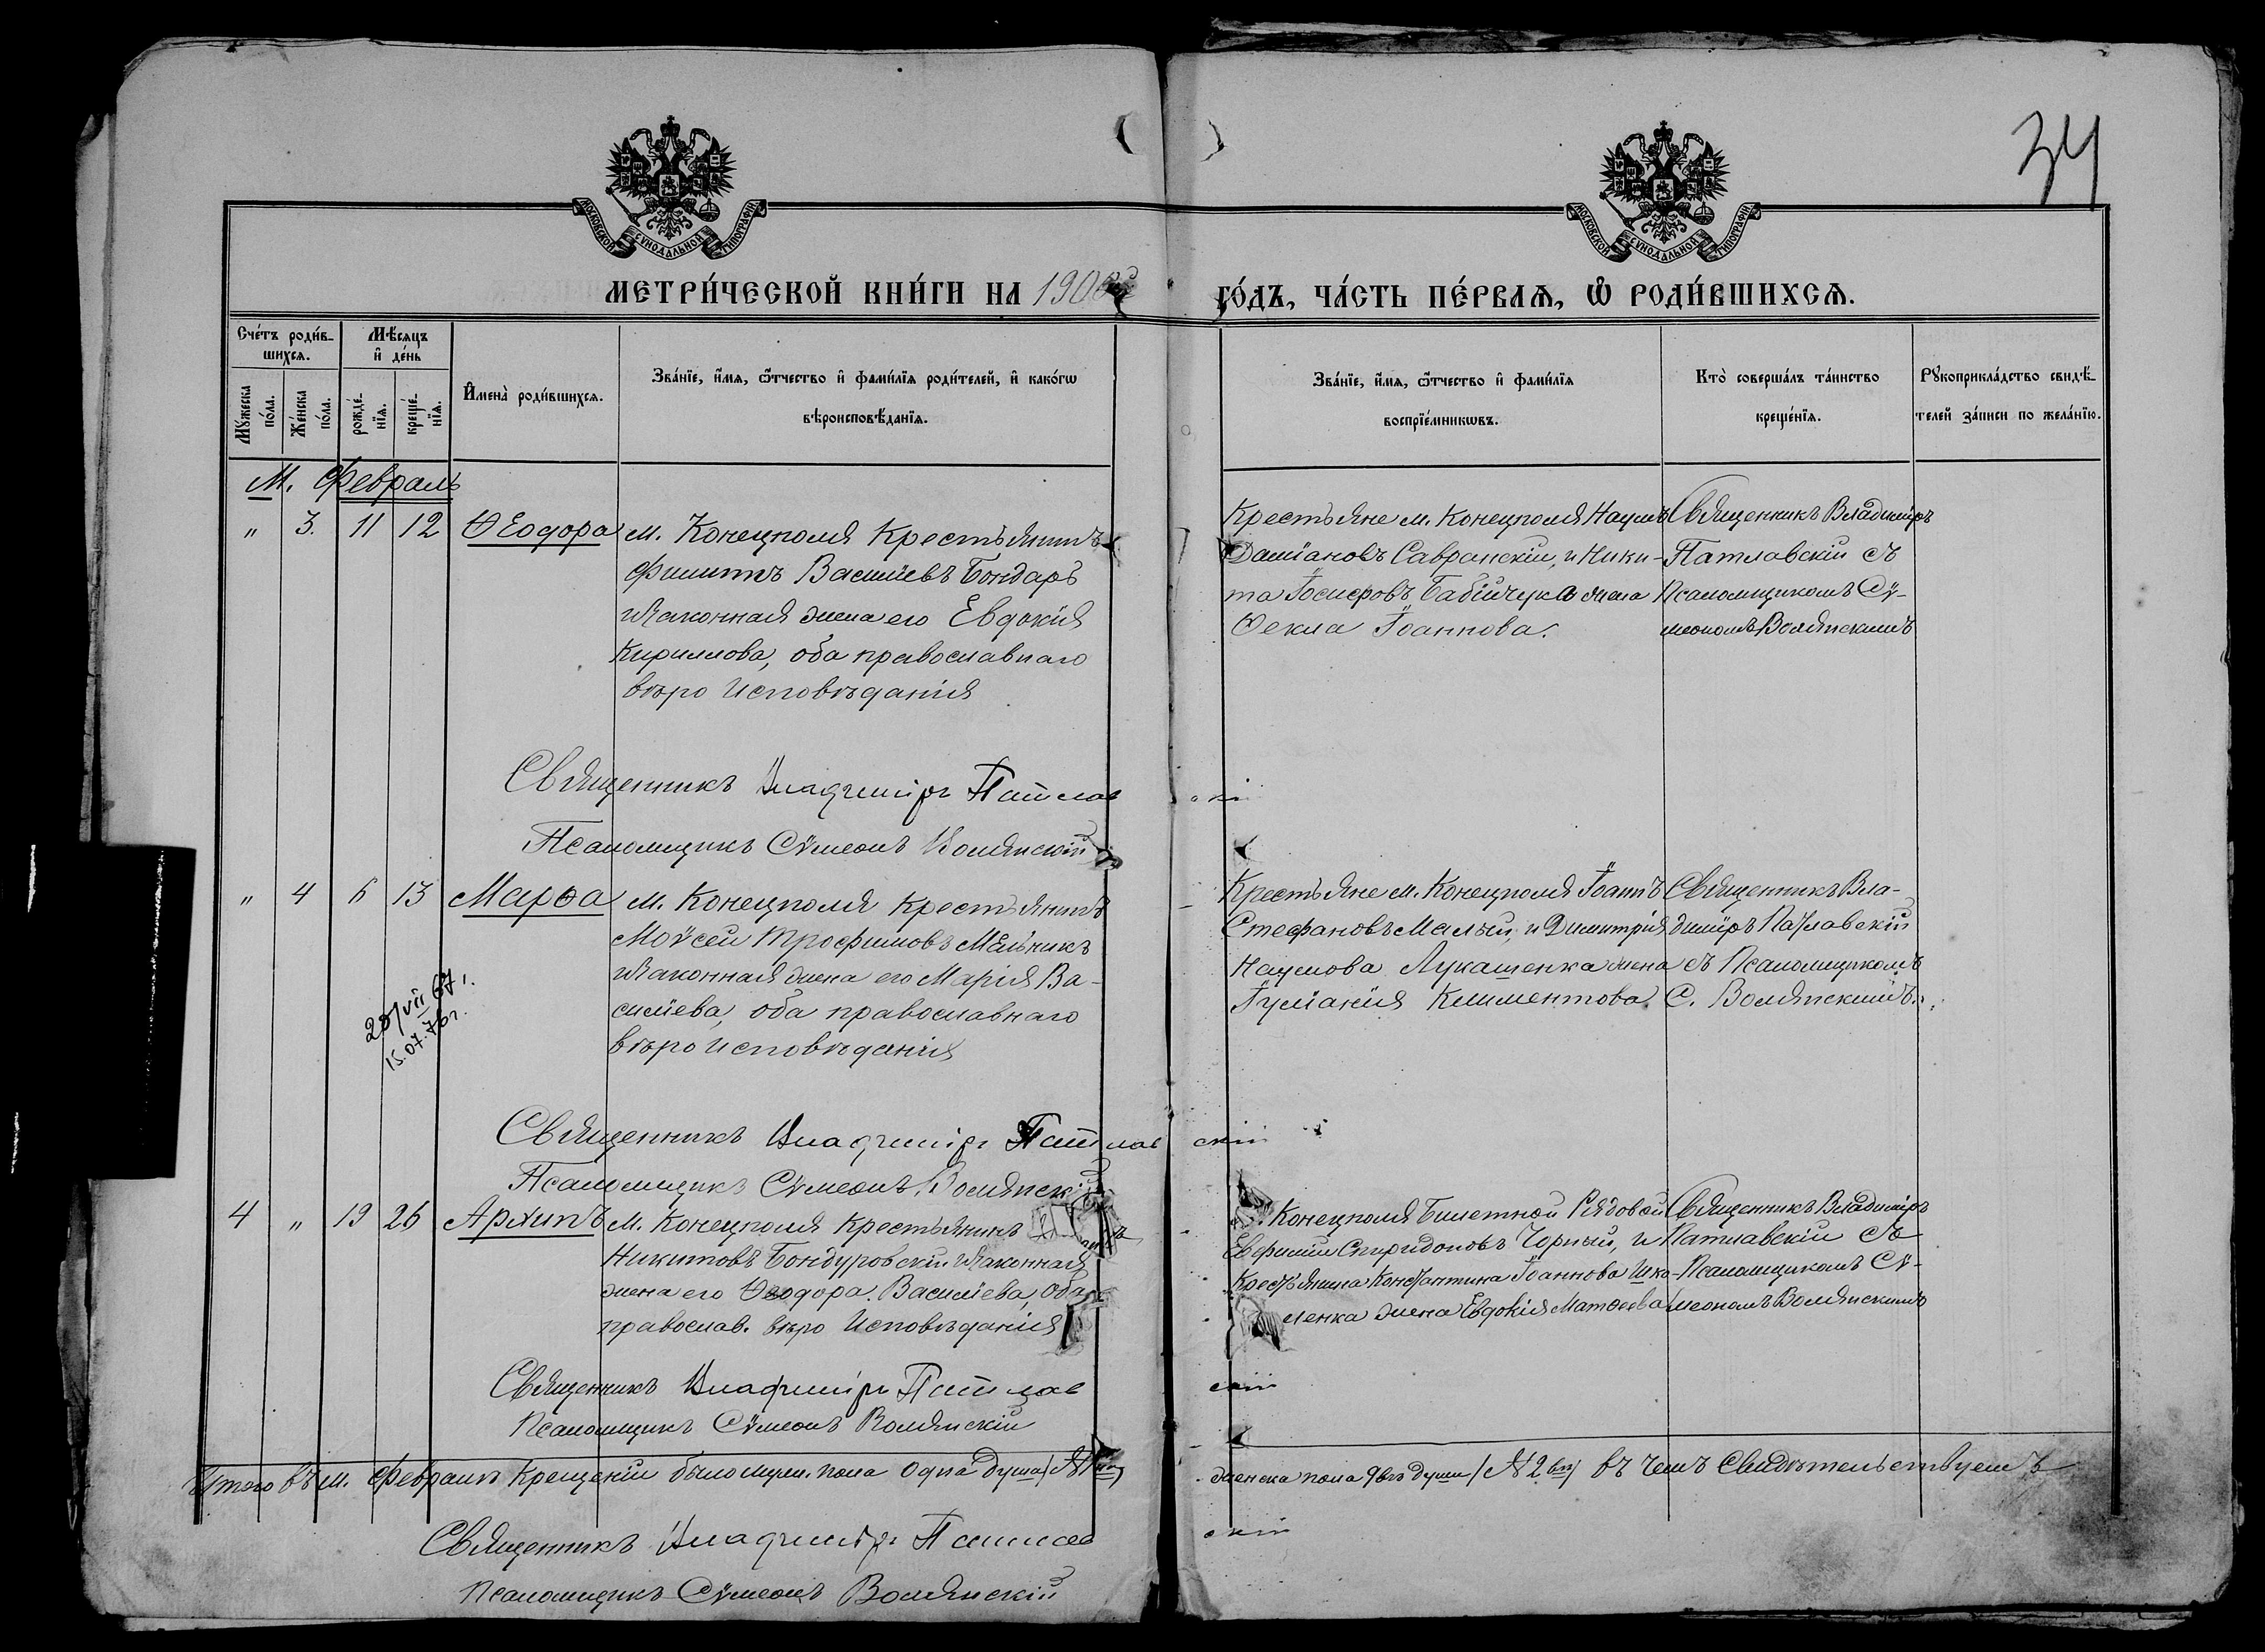 34
МОСКОВСКОЙ СѴНОДАЛЬНОЙ ТИПОГРАФІИ
МОСКОВСКОЙ СѴНОДАЛЬНОЙ ТИПОГРАФІИ
МЕТРИ́ЧЕСКОЙ КНИ́ГИ НА 190
ГО́ДЪ, ЧА́СТЬ ПЕ́РВАѦ, Ѡ҆ РОДИ́ВШИХСѦ.
Сче́тъ роди́в-
шихсѧ.
Мꙋ́жеска по́ла.
Же́нска по́ла.
Мѣ́сѧцъ
и҆ де́нь
рожде́-
нїѧ.
креще́-
нїѧ.
И҆мена̀ роди́вшихсѧ.
Зва́нїе, и҆́мѧ, ѻ҆́тчество и҆ фами́лїѧ роди́телей, и҆ како́гѡ
вѣроисповѣ́данїѧ.
Зва́нїе, и҆́мѧ, ѻ҆́тчество и҆ фами́лїѧ
воспрїе́мникѡвъ.
Кто̀ соверша́лъ та́инство
креще́нїѧ.
Рꙋкоприкла́дство свидѣ́-
телей за́писи по жела́нїю.
М. Февраль
„ 3. 11 12 Ѳеодора
м. Конецполя Крестьянинъ
Филиппъ Василіевъ Бондарь
и законная жена его Евдокія
Кириллова, оба православнаго
вѣро Исповѣданія
Крестьяне м. Конецполя Наумъ
Даміановъ Савранскій, и Ники-
та Іосифовъ Бабійчука жена
Ѳекла Іоаннова.
Священникъ Владиміръ
Патлавскій съ
Псаломщикомъ Сѵ-
меономъ Волянскимъ
Священникъ Владиміръ Патлавскій
Псаломщикъ Сѵмеонъ Волянскій
„ 4 6 13 Марѳа
м. Конецполя Крестьянинъ
Моѵсей Трофимовъ Мельникъ
и законная жена его Марія Ва-
силіева, оба православнаго
вѣро исповѣданія
Крестьяне м. Конецполя Іоаннъ
Стефановъ Малый, и Димитрія
Наумова Лукашенка жена
Іуліанія Климентова.
Священникъ Вла-
диміръ Патлавскій
съ Псаломщикомъ
С. Волянскимъ.
20/VII 67 г.
15.07.76 г.
Священникъ Владиміръ Патлавскій
Псаломщикъ Сѵмеонъ Волянскій
4 „ 19 26 Архипъ
м. Конецполя Крестьянинъ
Никитовъ Бондуровскій и законная
жена его Ѳеодора Василіева, оба
православ. вѣро Исповѣданія
Конецполя Билетной Рядовой
Евфимій Спиридоновъ Чорный, и
Крестьянина Константина Іоаннова Шко-
ленка жена Евдокія Матѳеева
Священникъ Владиміръ
Патлавскій съ
Псаломщикомъ Сѵ-
меономъ Волянскимъ
Священникъ Владиміръ Патлавскій
Псаломщикъ Сѵмеонъ Волянскій
Итого въ м. Февралѣ Крещеній было муж. пола одна душа
женска пола двѣ души (№ 2) въ чемъ Свидѣтельствуемъ
Священникъ Владиміръ Патлавскій
Псаломщикъ Сѵмеонъ Волянскій